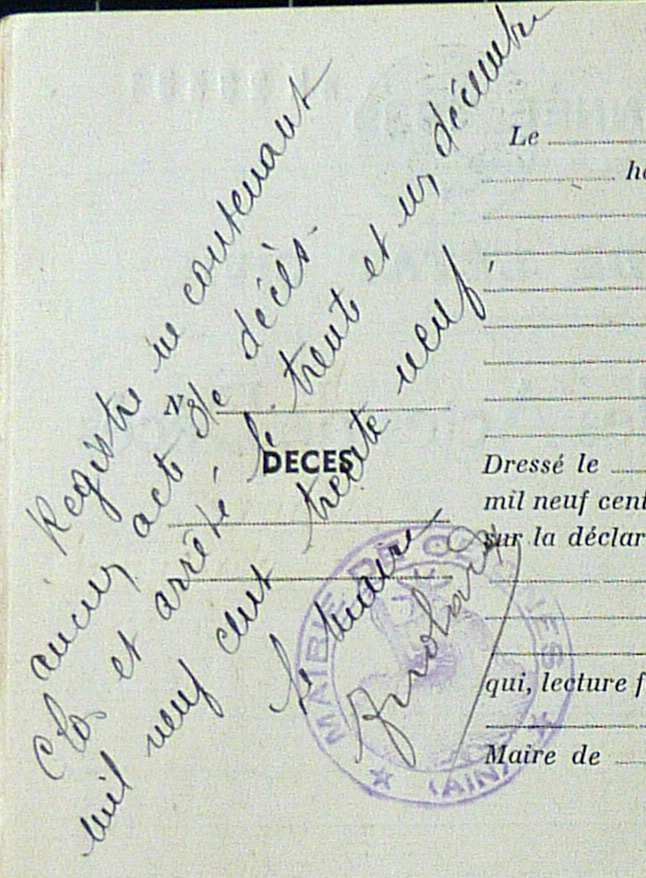 Registre ne contenant
aucun acte de décès.
Clos et arrêté le trente et un décembre
mil neuf cent trente neuf.
Le Maire
N°
DECES
MAIRIE DE
(AIN)
Le
he
Dressé le
mil neuf cent
sur la déclar
qui, lecture f
Maire de